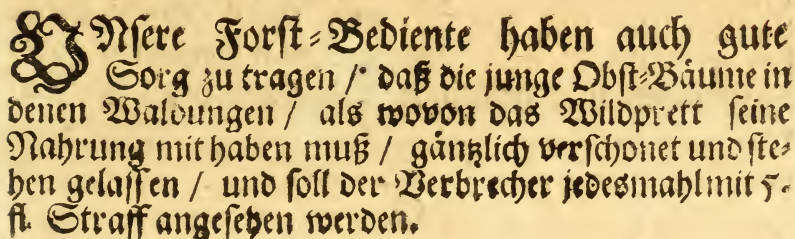 UNsere Forst-Bediente haben auch gute
Sorg zu tragen / daß die junge Obst-Bäume in
denen Waldungen / als wovon das Wildprett seine
Nahrung mit haben muß / gäntzlich verschonet und ste-
hen gelassen / und soll der Verbrecher jedesmahl mit 5.
fl. Straff angesehen werden.